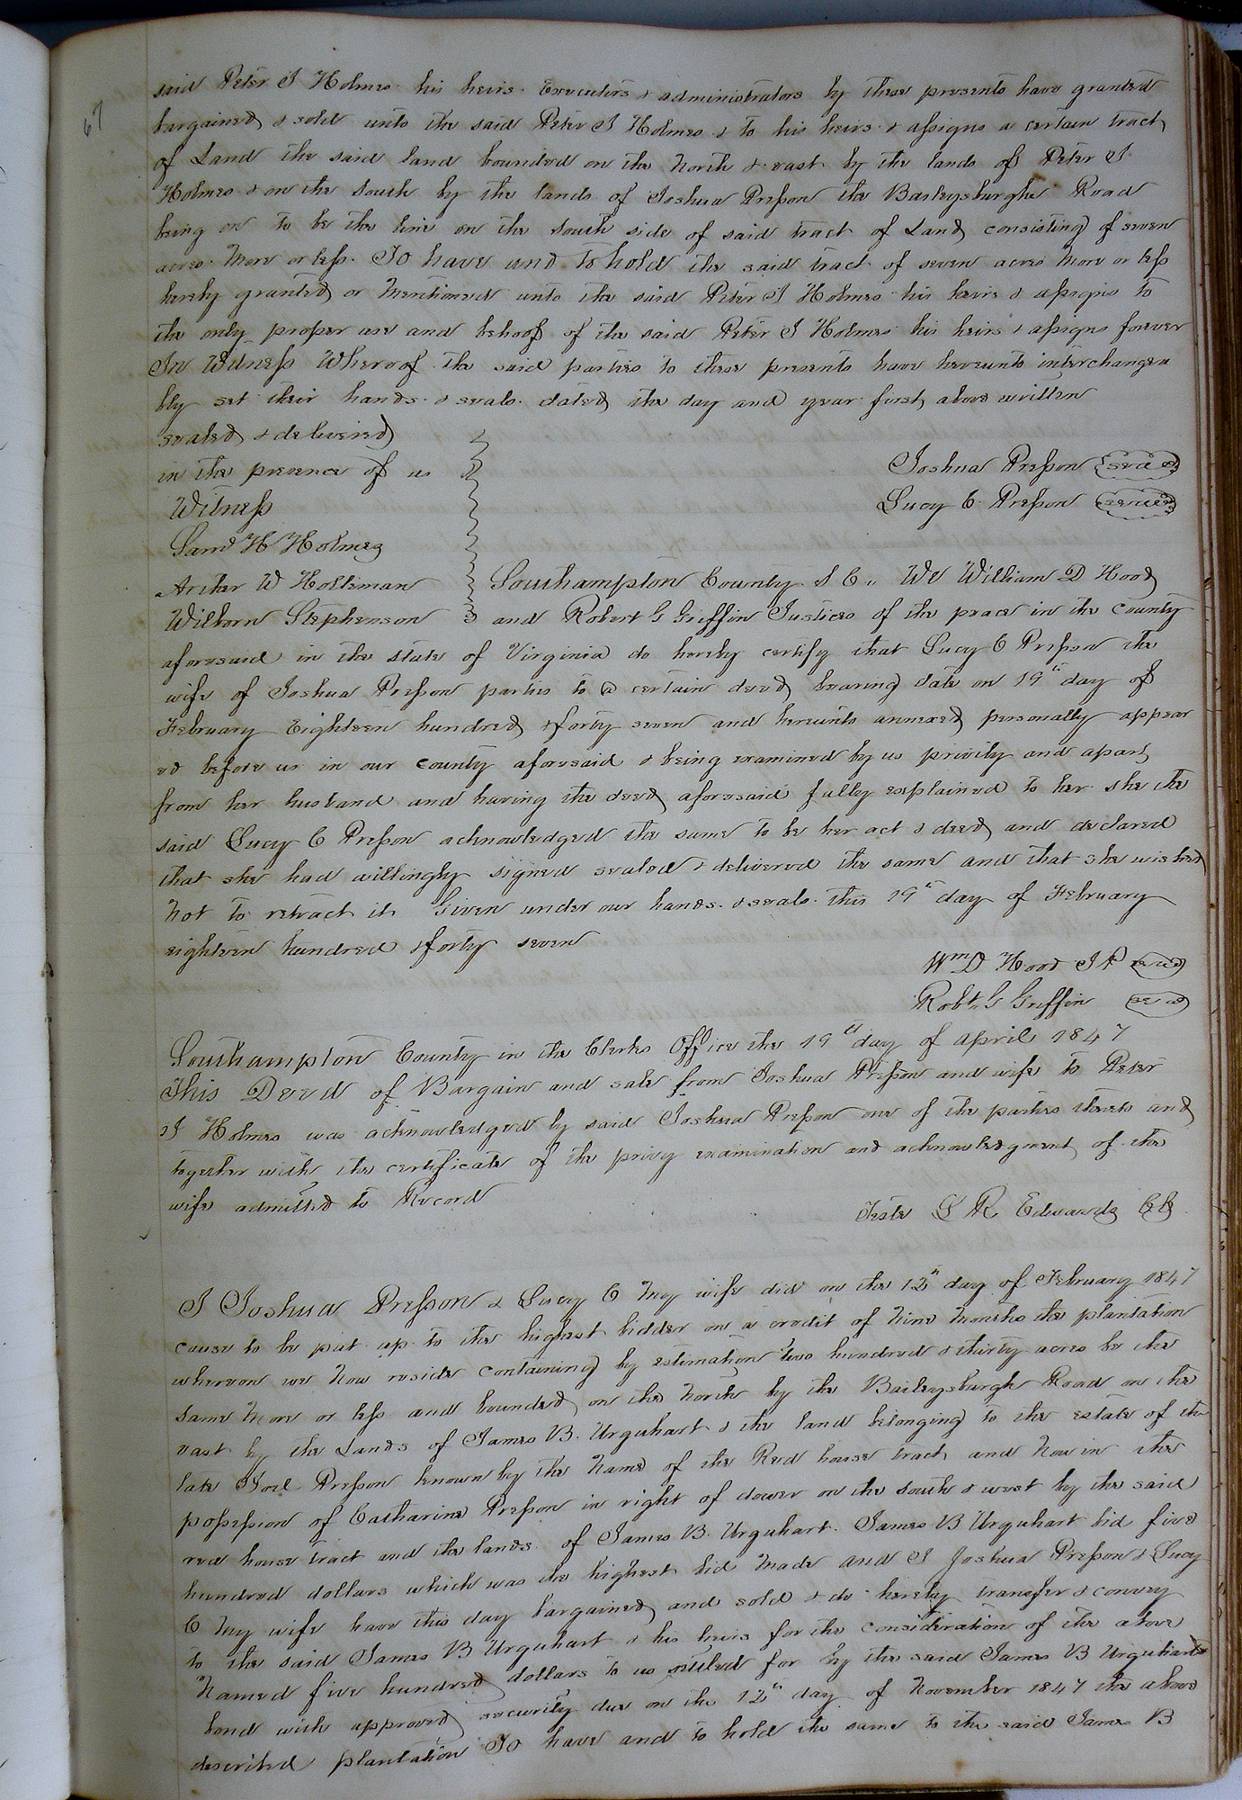 67
said Peter J Holmes his heirs Executors & administrators by these presents have granted
bargained & sold unto the said Peter J Holmes & to his heirs & assigns a certain tract
of Land the said land bounded on the North & east by the lands of Peter J.
Holmes & on the South by the lands of Joshua Presson the Baileysburgh Road
being on to be the line on the South side of said tract of Land consisting of seven
acres More or less. To have and to hold the said tract of seven acres More or less
hereby granted or Mentioned unto the said Peter J Holmes his heirs & assigns to
the only proper use and behoof of the said Peter J Holmes his heirs & assigns forever
In Witness Whereof the said parties to these presents have hereunto interchangea
bly set their hands & seals dated the day and year first above written
sealed & delivered
in the presence of us
Joshua Presson seal
Witness
Lucy C. Presson seal
Saml H Holmes
Archer W Holleman
Wilborn Stephenson
Southampton County S C., We William D Hood
and Robert G Griffin Justices of the peace in the County
aforesaid in the state of Virginia do hereby certify that Lucy C Presson the
wife of Joshua Presson parties to a certain deed bearing date on 19th day of
February Eighteen hundred & forty seven and hereunto annexed personally appear
ed before us in our County aforesaid & being examined by us privily and apart
from her husband and having the deed aforesaid fully explained to her she the
said Lucy C Presson acknowledged the same to be her act & deed and declared
that she had willingly signed sealed & delivered the same and that she wished
Not to retract it. Given under our hands & seals this 19th day of February
eighteen hundred & forty seven
Wm D Hood J P seal
Robt. G Griffin seal
Southampton County in the Clerks Office the 19th day of April 1847
This Deed of Bargain and sale from Joshua Presson and wife to Peter
J Holmes was acknowledged by said Joshua Presson one of the parties thereto and
together with the certificate of the privy examination and acknowledgment of the
wife admitted to Record
Teste L R Edwards CC
I Joshua Presson & Lucy C My wife did on the 12th day of February 1847
cause to be put up to the highest bidder on a credit of Nine Months the plantation
whereon we Now reside containing by estimation two hundred & thirty acres be the
same More or less and bounded on the North by the Baileysburgh Road on the
east by the Lands of James B. Urquhart & the land belonging to the estate of the
late Joel Presson known by the Name of the Red house tract, and Now in the
possession of Catharine Presson in right of dower on the South & west by the said
red house tract and the lands of James B. Urquhart. James B Urquhart bid five
hundred dollars which was the highest bid Made and I Joshua Presson & Lucy
C My wife have this day bargained and sold & do hereby transfer & convey
to the said James B Urquhart & his heirs for the consideration of the above
Named five hundred dollars to us settled for by the said James B Urquharts
bond with approved security due on the 12th day of November 1847 the above
described plantation To have and to hold the same to the said James B